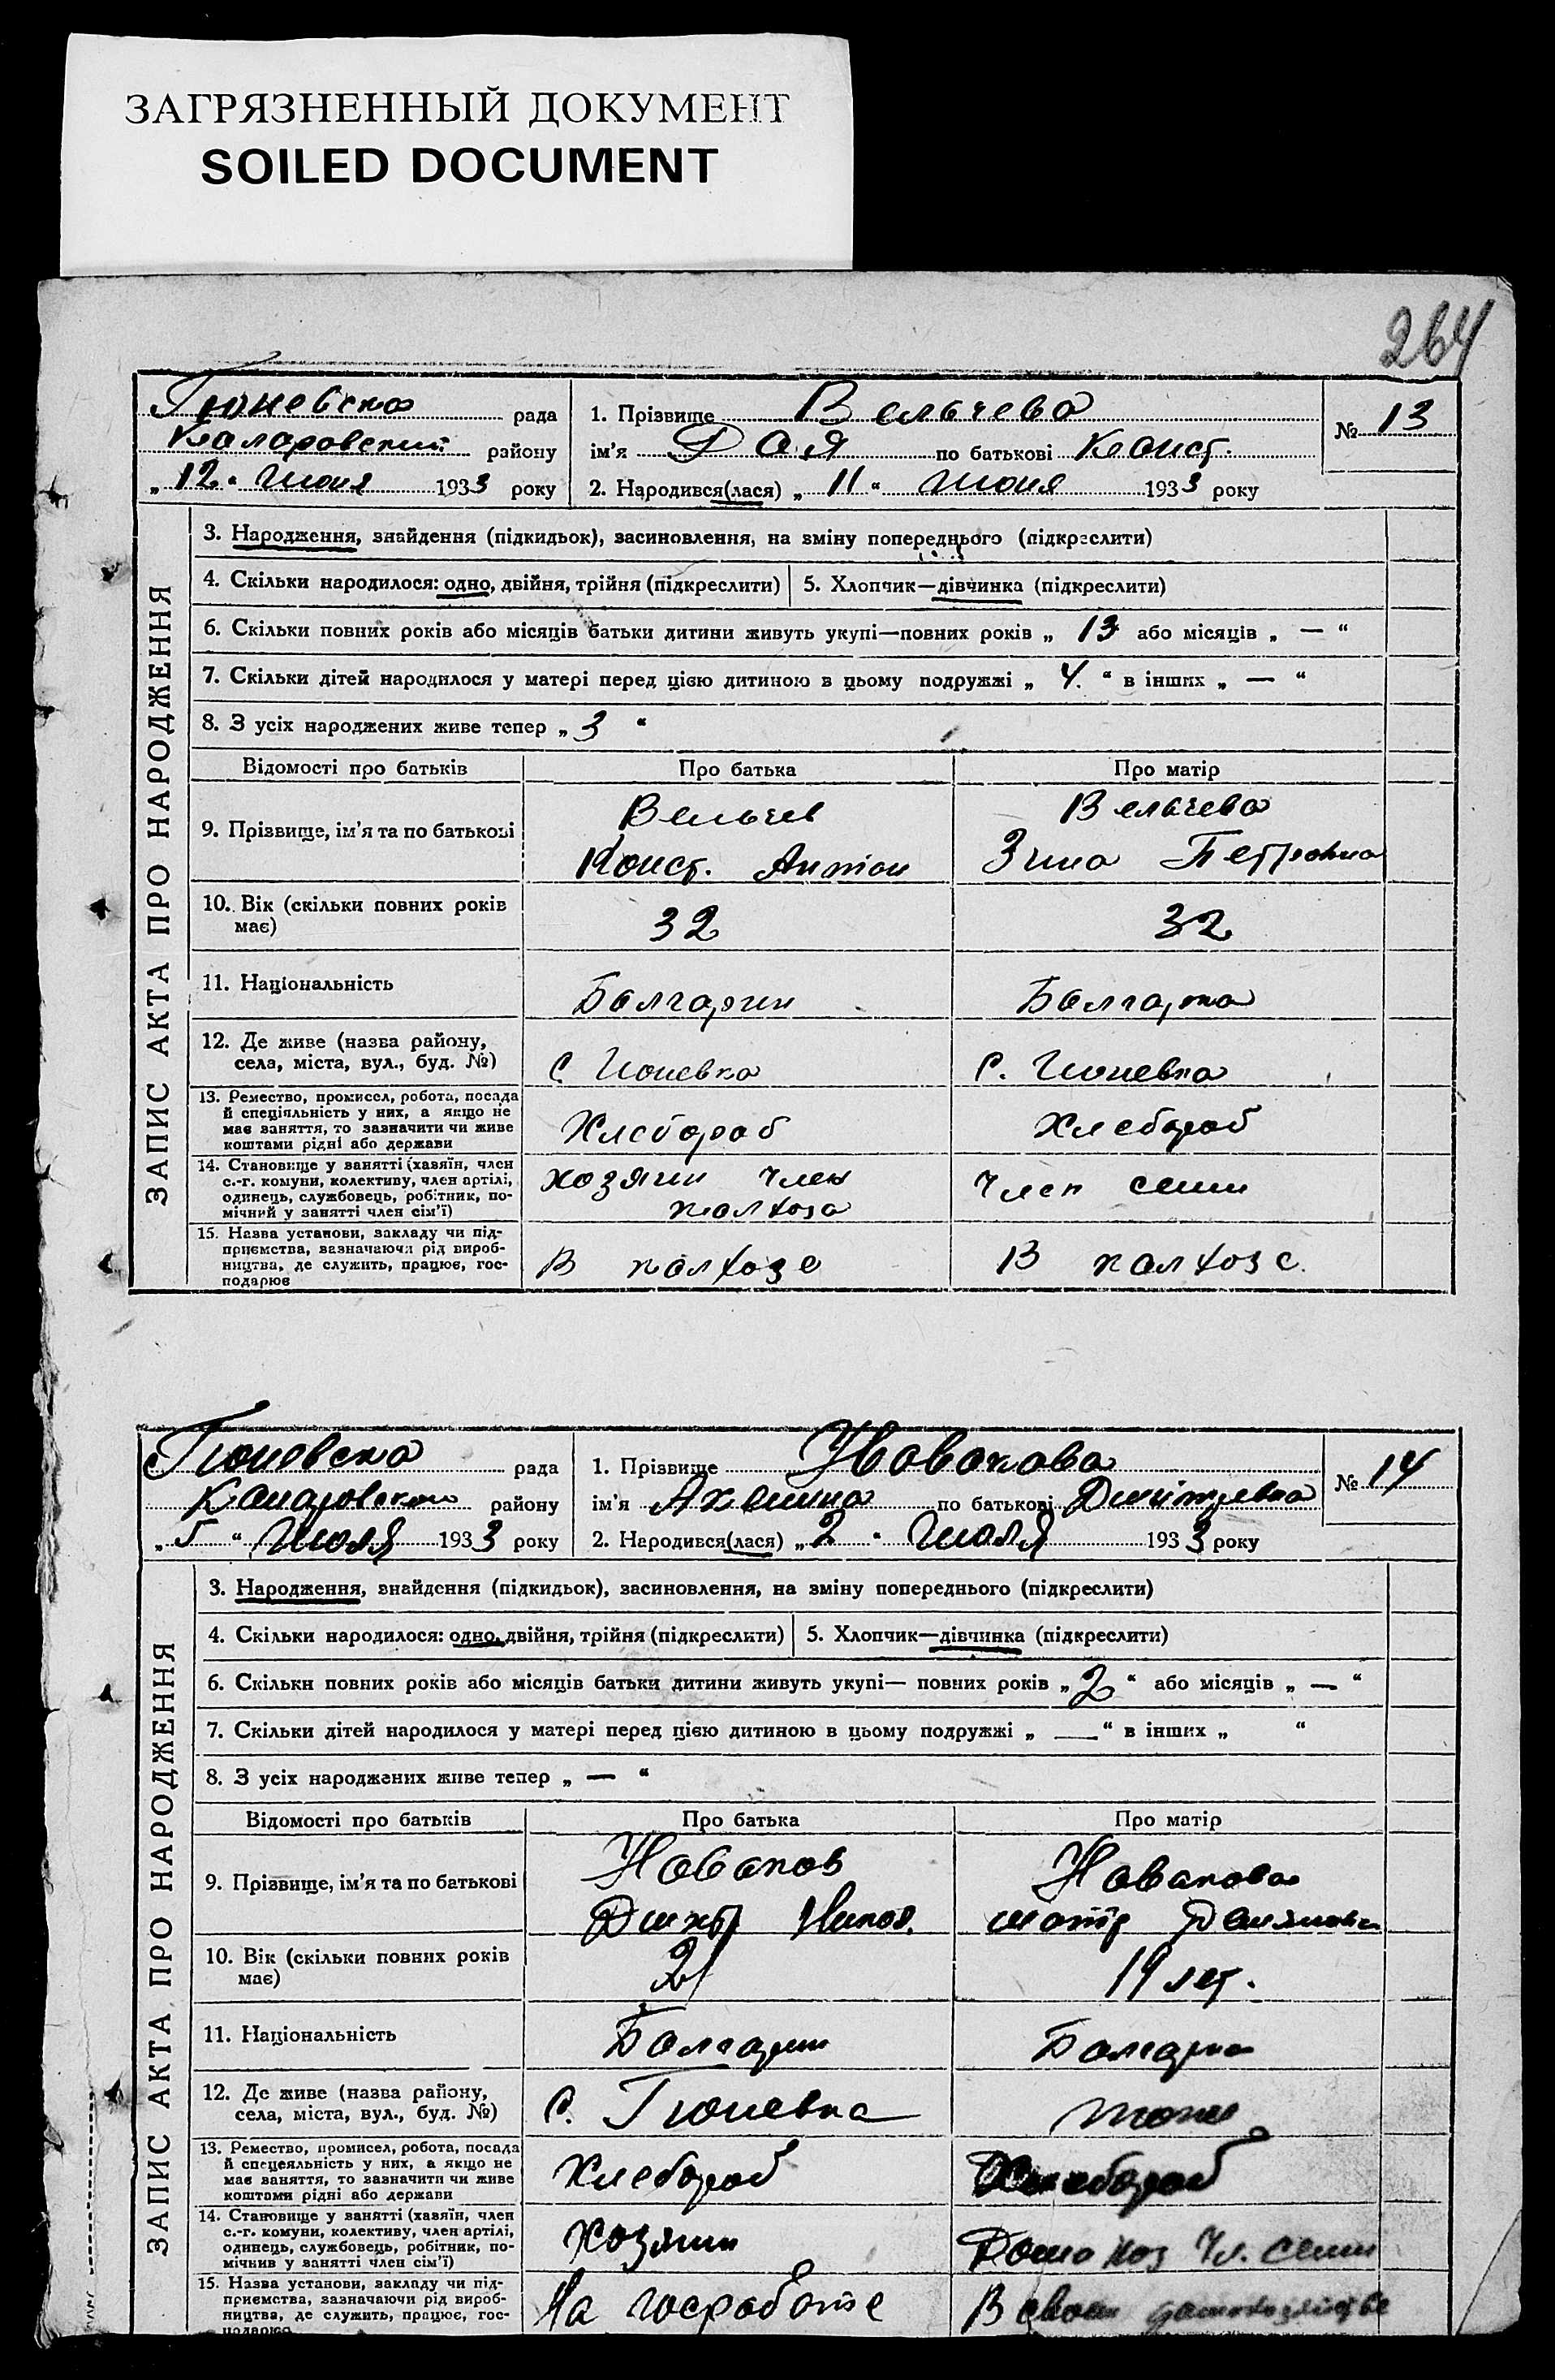 ЗАГРЯЗНЕННЫЙ ДОКУМЕНТ
SOILED DOCUMENT
264
Гюневска рада
Коларовский району
„ 12 “ Июня 1933 року
1. Прізвище Вельчева
ім’я Рая по батькові Конст.
2. Народився(лася) „ 11 “ Июня 1933 року
№ 13
ЗАПИС АКТА ПРО НАРОДЖЕННЯ
3. Народження, знайдення (підкидьок), засиновлення, на зміну попереднього (підкреслити)
4. Скільки народилося: одно, двійня, трійня (підкреслити) 5. Хлопчик—дівчинка (підкреслити)
6. Скільки повних років або місяців батьки дитини живуть укупі—повних років „ 13 або місяців „ — “
7. Скільки дітей народилося у матері перед цією дитиною в цьому подружжі „ 4. “ в інших „ — “
8. З усіх народжених живе тепер „ 3 “
Відомості про батьків Про батька Про матір
9. Прізвище, ім’я та по батькові
Вельчев
Конст. Антон
Вельчева
Зина Петровна
10. Вік (скільки повних років
має)
32
32
11. Національність
Болгарин
Болгарка
12. Де живе (назва району,
села, міста, вул., буд. №)
С. Гюневка
С. Гюневка
13. Ремество, промисел, робота, посада
й спеціяльність у них, а якщо не
має заняття, то зазначити чи живе
коштами рідні або держави
Хлебороб
Хлебороб
14. Становище у занятті (хазяїн, член
с.-г. комуни, колективу, член артілі,
одинець, службовець, робітник, по-
мічний у занятті член сім’ї)
хозяин член
колхоза
Член семи
15. Назва установи, закладу чи під-
приємства, зазначаючи рід вироб-
ництва, де служить, працює, гос-
подарює
В колхозе
В колхозе.
Гюневска рада
Коларовском району
„ 5 “ Июля 1933 року
1. Прізвище Новакова
ім’я по батькові Дмитревна
2. Народився(лася) „ 2 “ Июля 1933 року
№ 14
ЗАПИС АКТА ПРО НАРОДЖЕННЯ
3. Народження, знайдення (підкидьок), засиновлення, на зміну попереднього (підкреслити)
4. Скільки народилося: одно, двійня, трійня (підкреслити) 5. Хлопчик—дівчинка (підкреслити)
6. Скільки повних років або місяців батьки дитини живуть укупі— повних років „ 2 “ або місяців „ — “
7. Скільки дітей народилося у матері перед цією дитиною в цьому подружжі „ — “ в інших „ “
8. З усіх народжених живе тепер „ — “
Відомості про батьків Про батька Про матір
9. Прізвище, ім’я та по батькові
Новаков
Никол.
Новакова
10. Вік (скільки повних років
має)
21
19 лет.
11. Національність
Болгарин
Болгарка
12. Де живе (назва району,
села, міста, вул., буд. №)
С. Гюневка
тоже
13. Ремество, промисел, робота, посада
й спецеяльність у них, а якщо не
має заняття, то зазначити чи живе
коштами рідні або держави
Хлебороб
Хлебороб
14. Становище у занятті (хазяїн, член
с.-г. комуни, колективу, член артілі,
одинець, службовець, робітник, по-
мічнив у занятті член сім’ї)
Хозяин
Домо хоз Чл. семи
15. Назва установи, закладу чи під-
приємства, зазначаючи рід вироб-
ництва, де служить, працює, гос-
подарює
На госработе
В своем